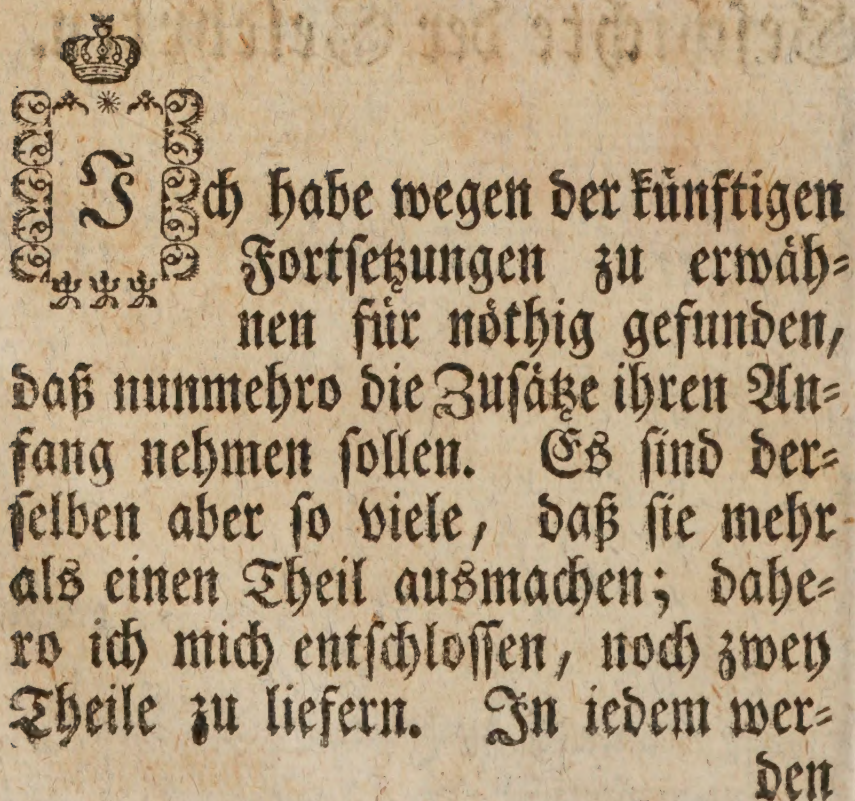 Ich habe wegen der künftigen
Fortsetzungen zu erwäh⸗
nen für nöthig gefunden,
daß nunmehro die Zusätze ihren An⸗
fang nehmen sollen. Es sind der⸗
selben aber so viele, daß sie mehr
als einen Theil ausmachen; dahe⸗
ro ich mich entschlossen, noch zwey
Theile zu liefern. In iedem wer⸗
den